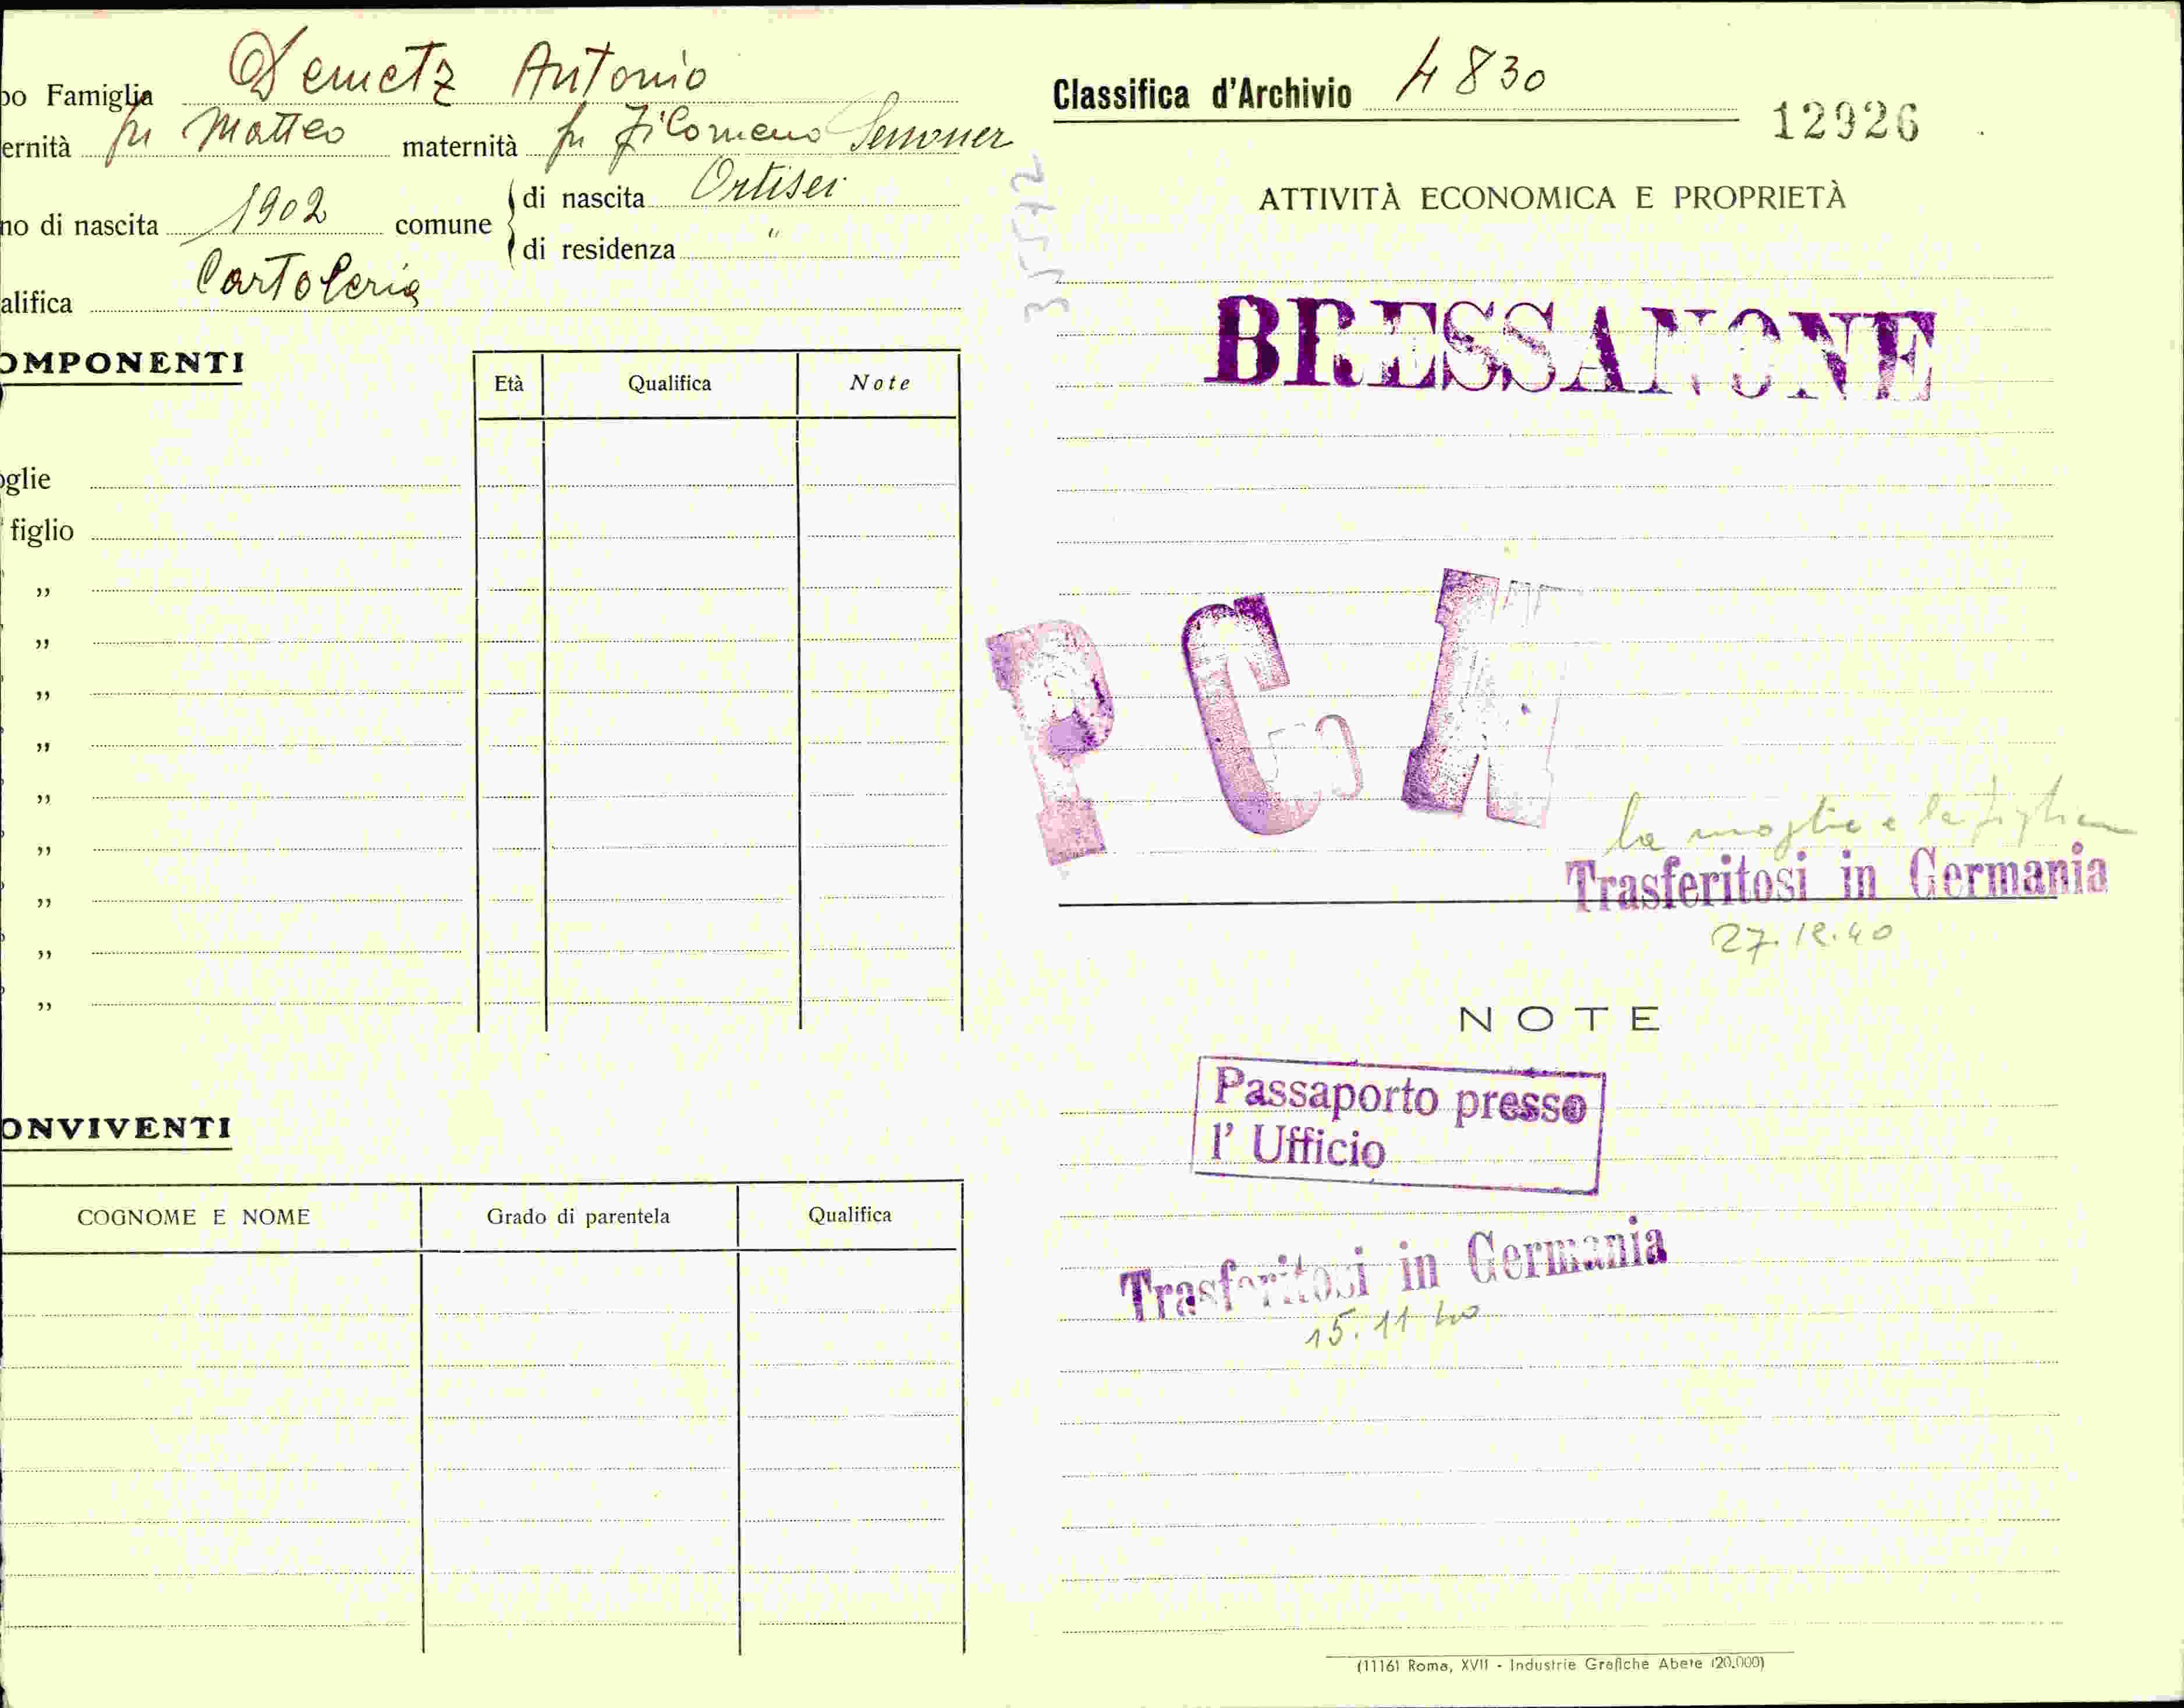 po Famiglia Demetz Antonio
ernità fu Matteo maternità fu Filomena Senoner
no di nascita 1902 comune di nascita Ortisei
di residenza "
alifica Cartoleria
OMPONENTI
Età Qualifica Note
oglie
figlio
"
"
"
"
"
"
"
"
"
ONVIVENTI
COGNOME E NOME Grado di parentela Qualifica
Classifica d'Archivio 4830
12926
ATTIVITÀ ECONOMICA E PROPRIETÀ
BRESSANONE
P C
la moglie e la figlia
Trasferitosi in Germania
27.12.40
NOTE
Passaporto presso
l' Ufficio
Trasferitosi in Germania
15.11 40
(1116) Roma, XVII - Industrie Grafiche Abete (20.000)